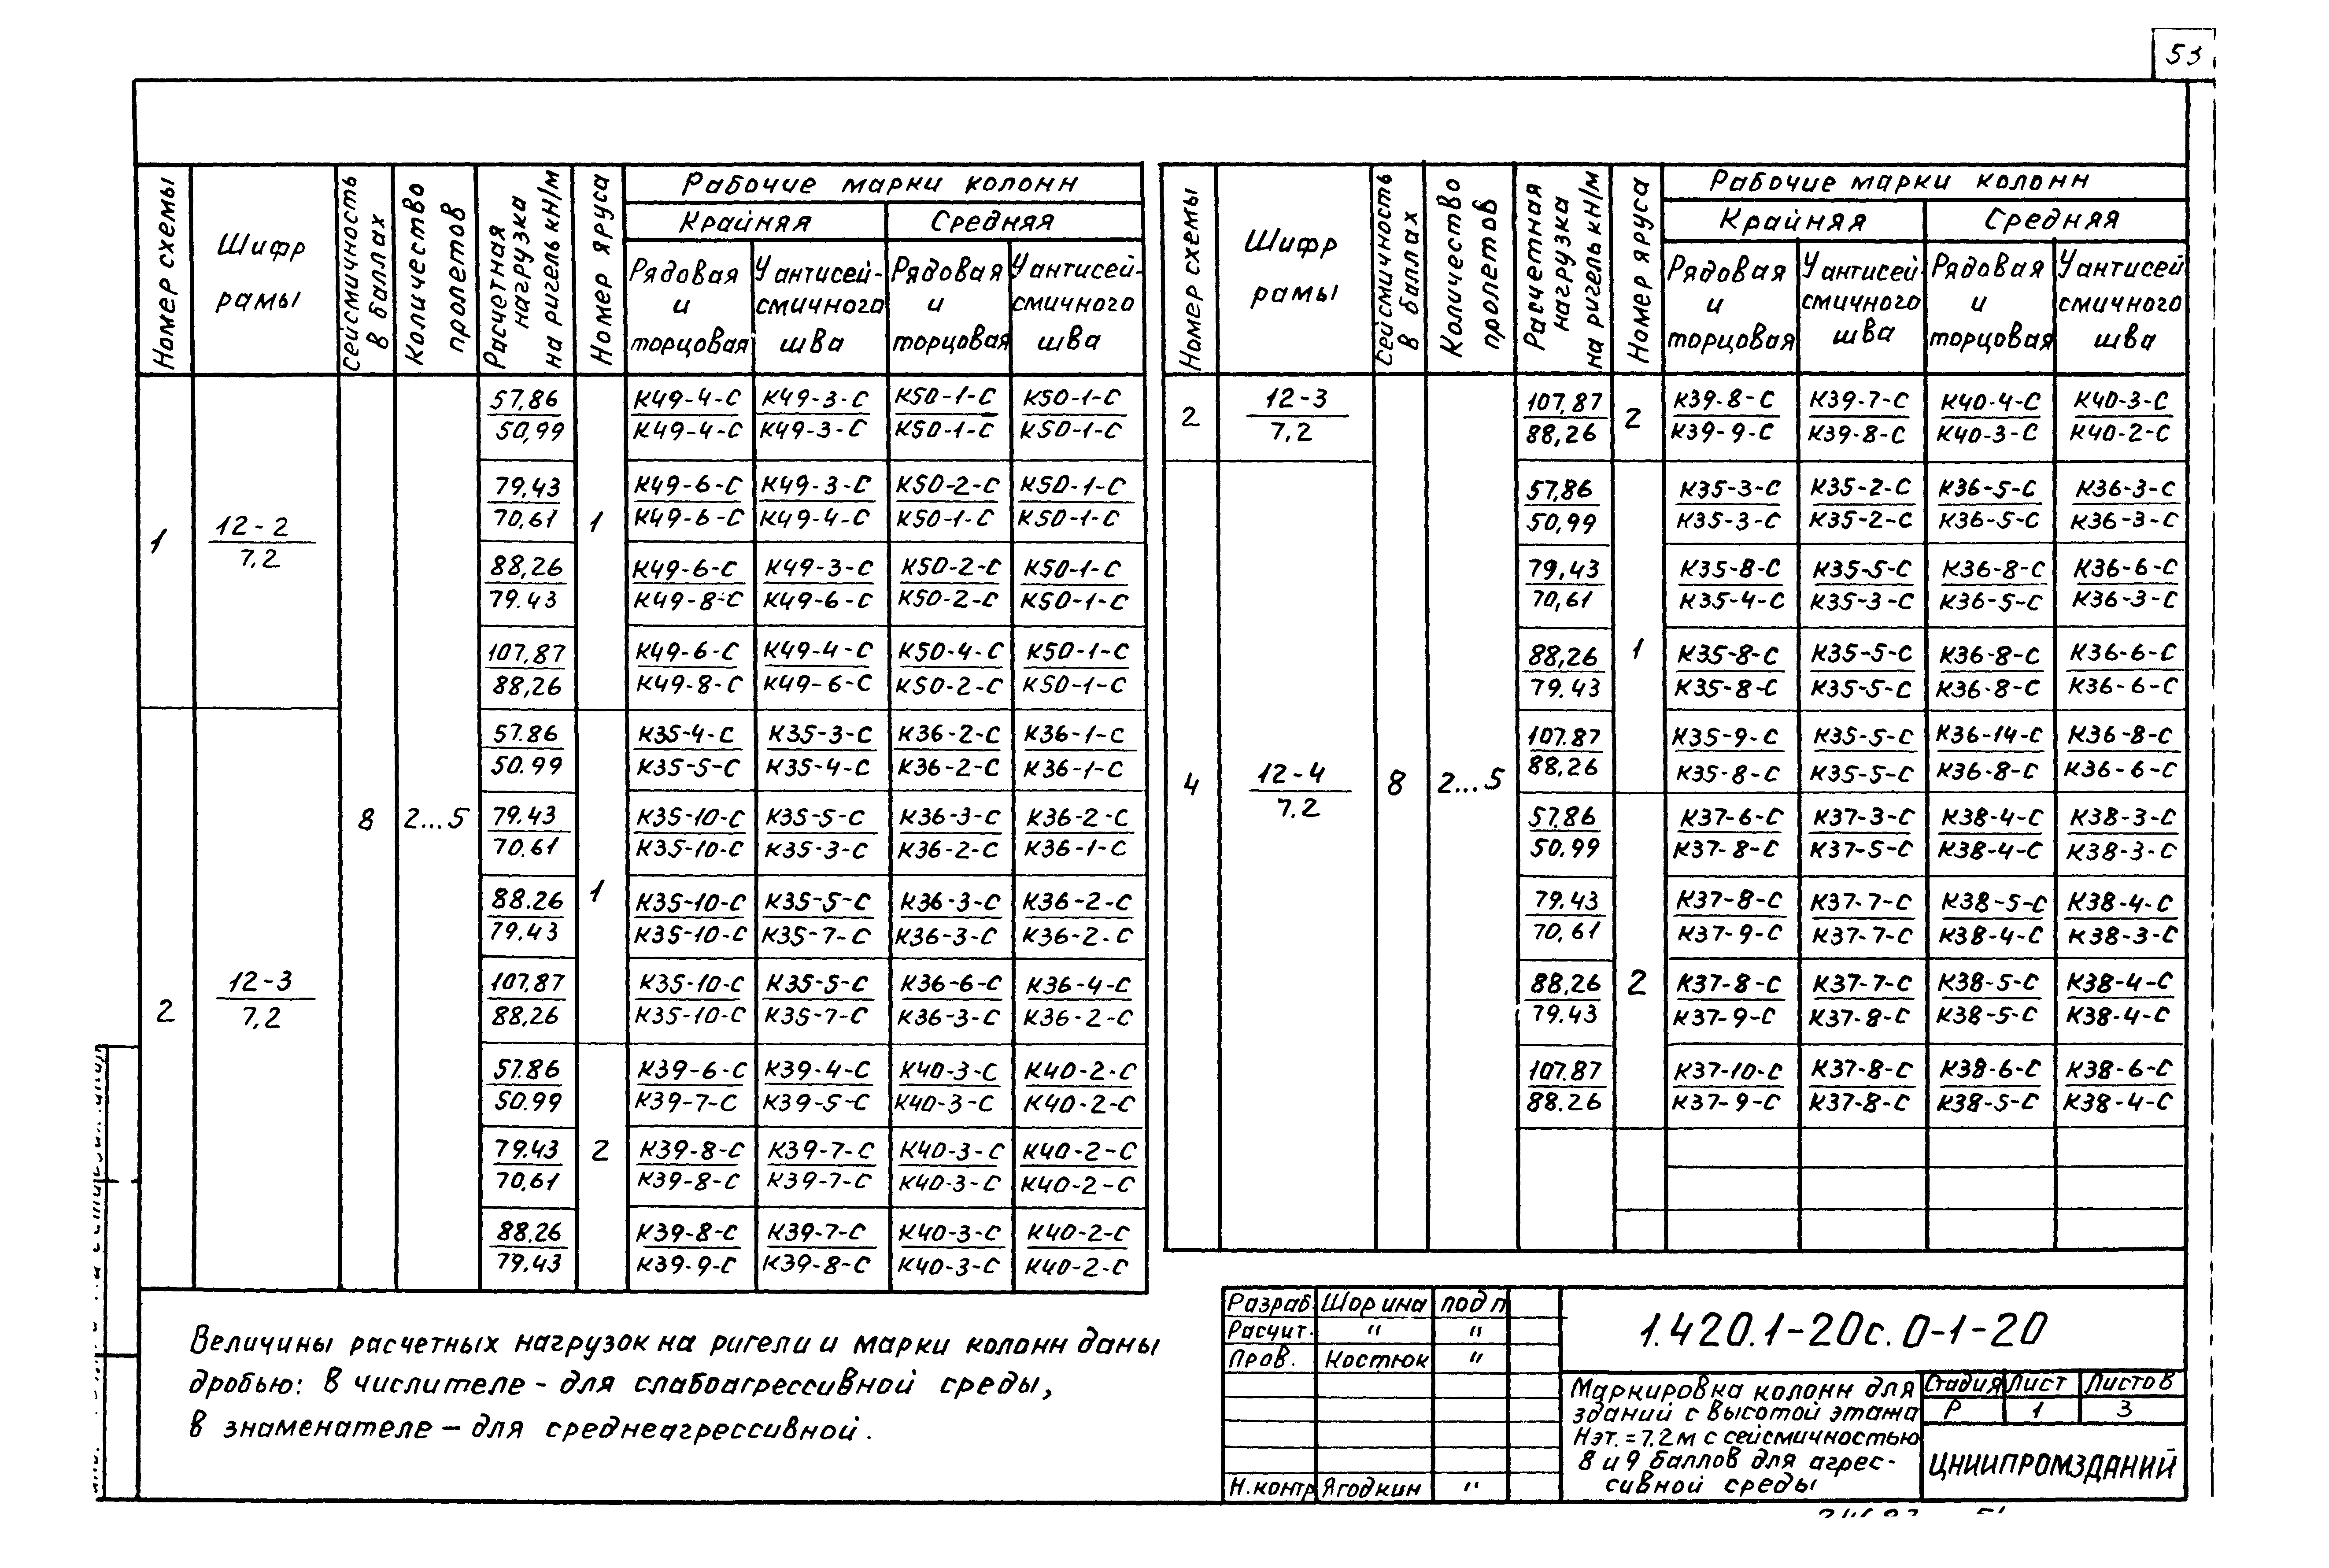 53
Номер схемы
Шифр рамы
Сейсмичность в баллах
Количество пролетов
Расчетная нагрузка на ригель кН/м
Номер яруса
Рабочие марки колонн
Крайняя Средняя
Рядовая и торцовая
У антисейсмичного шва
Рядовая и торцовая
У антисейсмичного шва
1 12-2 7.2
8 2...5
1
57,86 К49-4-С К49-3-С К50-1-С К50-1-С
50,99 К49-4-С К49-3-С К50-1-С К50-1-С
79.43 К49-6-С К49-3-С К50-2-С К50-1-С
70,61 К49-6-С К49-4-С К50-1-С К50-1-С
88,26 К49-6-С К49-3-С К50-2-С К50-1-С
79.43 К49-8-С К49-6-С К50-2-С К50-1-С
107,87 К49-6-С К49-4-С К50-4-С К50-1-С
88,26 К49-8-С К49-6-С К50-2-С К50-1-С
2 12-3 7,2
1
57.86 К35-4-С К35-3-С К36-2-С К36-1-С
50.99 К35-5-С К35-4-С К36-2-С К36-1-С
79.43 К35-10-С К35-5-С К36-3-С К36-2-С
70.61 К35-10-С К35-3-С К36-2-С К36-1-С
88.26 К35-10-С К35-5-С К36-3-С К36-2-С
79.43 К35-10-С К35-7-С К36-3-С К36-2-С
107,87 К35-10-С К35-5-С К36-6-С К36-4-С
88,26 К35-10-С К35-7-С К36-3-С К36-2-С
2
57.86 К39-6-С К39-4-С К40-3-С К40-2-С
50.99 К39-7-С К39-5-С К40-3-С К40-2-С
79.43 К39-8-С К39-7-С К40-3-С К40-2-С
70,61 К39-8-С К39-7-С К40-3-С К40-2-С
88.26 К39-8-С К39-7-С К40-3-С К40-2-С
79.43 К39-9-С К39-8-С К40-3-С К40-2-С
Номер схемы
Шифр рамы
Сейсмичность в баллах
Количество пролетов
Расчетная нагрузка на ригель кН/м
Номер яруса
Рабочие марки колонн
Крайняя Средняя
Рядовая и торцовая
У антисейсмичного шва
Рядовая и торцовая
У антисейсмичного шва
2 12-3 7,2
2
107,87 К39-8-С К39-7-С К40-4-С К40-3-С
88,26 К39-9-С К39-8-С К40-3-С К40-2-С
4 12-4 7.2
8 2...5
1
57,86 К35-3-С К35-2-С К36-5-С К36-3-С
50,99 К35-3-С К35-2-С К36-5-С К36-3-С
79,43 К35-8-С К35-5-С К36-8-С К36-6-С
70,61 К35-4-С К35-3-С К36-5-С К36-3-С
88,26 К35-8-С К35-5-С К36-8-С К36-6-С
79.43 К35-8-С К35-5-С К36-8-С К36-6-С
107.87 К35-9-С К35-5-С К36-14-С К36-8-С
88,26 К35-8-С К35-5-С К36-8-С К36-6-С
2
57.86 К37-6-С К37-3-С К38-4-С К38-3-С
50.99 К37-8-С К37-5-С К38-4-С К38-3-С
79.43 К37-8-С К37-7-С К38-5-С К38-4-С
70,61 К37-9-С К37-7-С К38-4-С К38-3-С
88,26 К37-8-С К37-7-С К38-5-С К38-4-С
79.43 К37-9-С К37-8-С К38-5-С К38-4-С
107.87 К37-10-С К37-8-С К38-6-С К38-6-С
88.26 К37-9-С К37-8-С К38-5-С К38-4-С
Величины расчетных нагрузок на ригели и марки колонн даны
дробью: в числителе - для слабоагрессивной среды,
в знаменателе - для среднеагрессивной.
Разраб. Шорина подп
Расчит. " "
Пров. Костюк "
Н.контр Ягодкин "
1.420.1-20с.0-1-20
Маркировка колонн для
зданий с высотой этажа
Нэт.=7.2м с сейсмичностью
8 и 9 баллов для агрес-
сивной среды
Стадия Лист Листов
Р 1 3
ЦНИИПРОМЗДАНИЙ